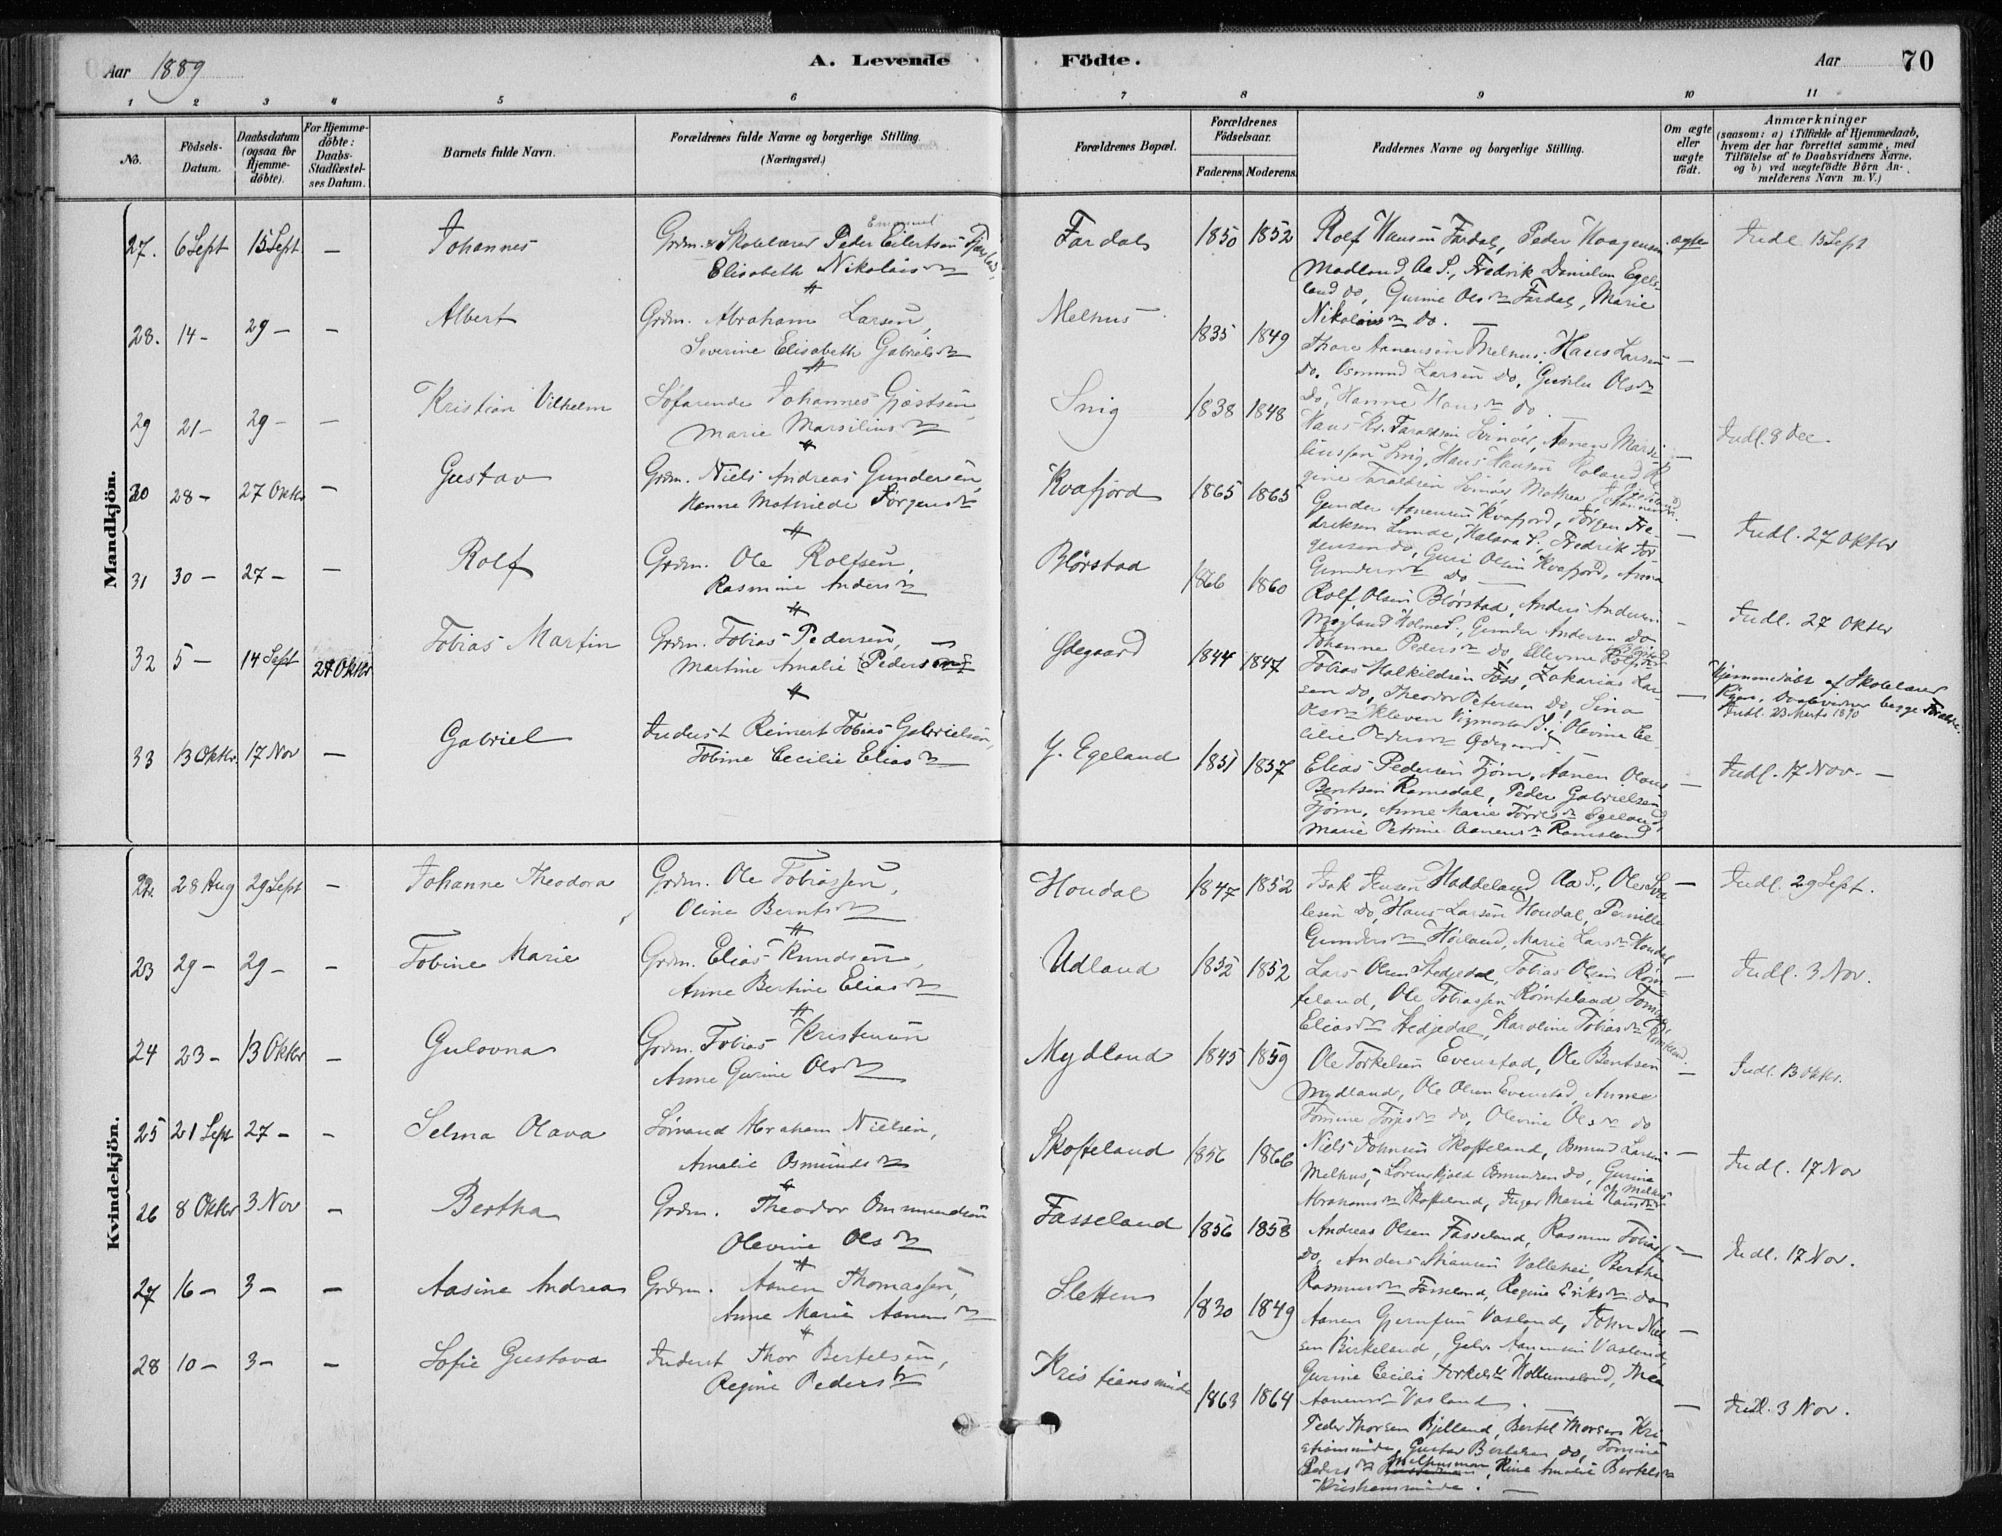 Aar 1889
A. Levende
Födte.
Aar
70
1 2 3 4 5 6 7 8 9 10 11
No.
Födsels-Datum.
Daabsdatum (ogsaa for Hjemme-döbte).
For Hjemme-döbte: Daabs-Stadfæstel-ses Datum.
Barnets fulde Navn.
Forældrenes fulde Navne og borgerlige Stilling. (Næringsvei.)
Forældrenes Bopæl.
Forældrenes Födselsaar.
Faderens. Moderens.
Faddernes Navne og borgerlige Stilling.
Om ægte eller uægte födt.
Anmærkninger
(saasom: a) i Tilfælde af Hjemmedaab, hvem der har forrettet samme, med Tilföielse af to Daabsvidners Navne, og b) ved uægtefödte Börn An-melderens Navn m. V.)
Mandkjön.
27. 6 Sept 15 Sept — Johannes
Grdm. & Skolelærer Peder Emanuel Eilertsen
Elisabeth Nikolaisdtr
Fardal 1850 1852
Rolf Hansen Fardal, Peder Haagensen
Madland, Aa S., Fredrik Danielsen Egels-
land do, Gurine Olsdtr Fardal, Marie
Nikolaisdtr do. —
ægte
Indl 15 Sept
28. 14 — 29 — — Albert
Grdm. Abraham Larsen,
Severine Elisabeth Gabrielsdtr
Melhus 1835 1849
Thore Aanensen Melhus, Hans Larsen
do. Osmund Larsen do, Gunhild Olsdtr
do, Hanne Hansdtr do. —
29 21 — 29 — — Kristian Vilhelm
Söfarende Johannes Gjertsen,
Marie Marsiliusdtr
Snig 1838 1848
Hans Kr. Taraldsen Svinör, Aanen Marsi-
Indl. 8 Dec.
30 28 — 27 Oktbr — Gustav
Grdm. Niels Andreas Gundersen,
Hanne Mathilde Jörgensdtr
Kvafjord 1865 1865
Gunder Aanensen Kvafjord, Jörgen Fre-
driksen Lunde, Halsaa S., Fredrik Jör-
gensen do, Guri Olsen Kvafjord, Anna
Gundersdtr do —
Indl. 27 Oktbr
31 30 — 27 — — Rolf
Grdm. Ole Rolfsen,
Rasmine Andersdtr
Blörstad 1866 1860
Rolf Olsen Blörstad, Anders Andersen
Mögland Holme S., Gunder Andersen do
Johanne Pedersdtr do, Ellevine
Indl. 27 Oktbr
32 5 — 14 Sept 27 Oktbr Tobias Martin
Grdm. Tobias Pedersen,
Martine Amalie Pedersdtr
Ödegaard 1844 1847
Tobias Halkildsen Foss, Zakarias Lar-
sen do, Theodor Petersen do, Sina
Olsdtr Kleven Vigmostad S., Olevina Ce-
cilie Pedersdtr Ödegaard.
Hjemmedöbt af Skolelærer
Daabsvidner begge Forældre.
Indl. 23 Marts 1890
33 13 Oktbr. 17 Nov — Gabriel
Inderst Reinert Tobias Gabrielsen,
Tobine Cecilie Eliasdtr
Y. Egeland 1851 1857
Elias Pedersen Tjöm, Aanen Olaus
Bentsen Ramsdal, Peder Gabrielsen
Tjöm, Anne Marie Törresdtr Egeland,
Marie Petrine Aanensdtr Ramsland
Indl. 17 Nov. —
Kvindekjön.
22. 28 Aug 29 Sept — Johanne Theodora
Grdm. Ole Tobiassen,
Oline Berntsdtr
Houdal 1847 1852
Isak Jensen Haddeland Aa S., Ole
lesen do, Hans Larsen Houdal, Pernille
Gundersdtr Höiland, Marie Larsdtr Houdal
Indl. 29 Sept.
23 29 — 29 — — Tobine Marie
Grdm. Elias Knudsen,
Anne Bertine Eliasdtr
Udland 1852 1852
Lars Olsen Stedjedal, Tobias Olsen Röm-
teland, Ole Tobiassen Römteland,
Eliasdtr Stedjedal, Karoline Tobiasdtr
Indl. 3 Nov.
24 23 — 13 Oktbr — Gulovna
Grdm. Tobias Kristensen
Anne Gurine Olsdtr
Mydland 1845 1859
Ole Torkelsen Evenstad, Ole Bentsen
Mydland, Ole Olsen Evenstad, Anne
do, Olevine Olsdtr do
Indl. 13 Oktbr.
25 21 Sept 27 — — Selma Olava
Sömand Abraham Nielsen,
Amalie Osmundsdtr
Skofteland 1856 1866
Niels Johnsen Skofteland, Osmund Larsen
Melhus, Lorenskjold Osmundsen do, Gurine
Abrahamsdtr Skofteland, Inger Marie Hansdtr Melhus
Indl. 17 Nov
26 8 Oktbr 3 Nov — Bertha
Grdm. Theodor Ommundsen
Olevine Olsdtr
Fasseland 1856 1858
Andreas Olsen Fasseland, Rasmus Tobiass
do, Anders Vallehei, Berthe
Rasmusdtr Fasseland, Regine Eriksdtr do
Indl. 17 Nov.
27 16 — 3 — — Aasine Andrea
Grdm. Aanen Thomassen,
Anne Marie Aanensdtr
Sletten 1830 1849
Aanen Vasland, John Niel-
sen Birkeland, Aanensen Vasland,
Gurine Cecilie Torkelsdtr Hollumsland, Thea
Aanensdtr Vasland. —
28 10 — 3 — — Sofie Gustava
Inderst Thor Bertelsen,
Regine Pedersdtr
Kristiansminde 1863 1864
Peder Thorsen Bjelland, Bertel Thorsen Kri-
stiansminde, Gustav Bertelsen do, Tomine
Pedersdtr, Amalie Bertelsdtr
Kristiansminde. —
Indl. 3 Nov.